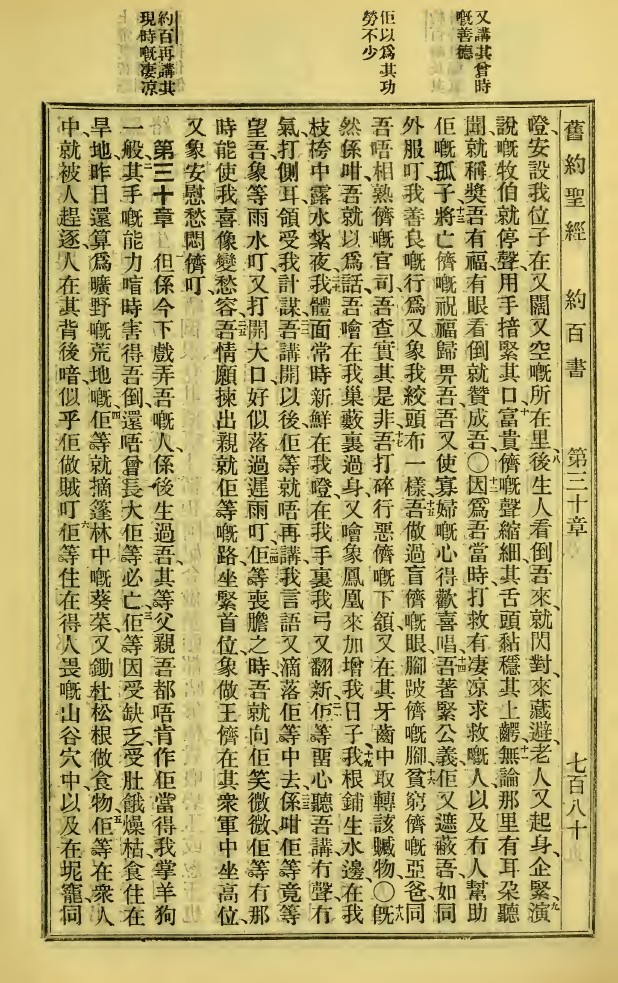 又講其曾時
嘅善德
佢以為其功
勞不少
約百再講其
現時嘅凄涼
舊約聖經　約百書　第三十章　七百八十
噔安設我位子在又闊又空嘅所在里後生人看倒吾來就閃對來藏避老人又起身企緊演
說嘅牧伯就停聲用手揞緊其口富貴儕嘅聲縮細其舌頭黏穩其上齶無論那里有耳朶聽
聞就稱獎吾有福有眼看倒就贊成吾〇因爲吾當時打救有凄涼求救嘅人以及冇人幫助
佢嘅孤子將亡儕嘅祝福歸畀吾吾又使寡婦嘅心得歡喜唱吾著緊公義佢又遮蔽吾如同
外服叮我善良嘅行爲又象我絞頭布一樣吾做過盲儕嘅眼腳跛儕嘅腳貧窮儕嘅亞爸同
吾唔相熟儕嘅官司吾查實其是非吾打碎行惡儕嘅下頷又在其牙齒中取轉該贓物〇旣
然係咁吾就以爲話吾噲在我巢藪裏過身又噲象鳳凰來加增我日子我根鋪生水邊在我
枝桍中露水紮夜我體面常時新鮮在我噔在我手裏我弓又翻新佢等畱心聽吾講冇聲冇
氣打側耳領受我計謀吾講開以後佢等就唔再講我言語又滴落佢等中去係咁佢等竟等
望吾象等雨水叮又打開大口好似落過遲雨叮佢等喪膽之時吾就向佢笑微微佢等冇那
時能使我喜像變愁容吾情願揀出親就佢等嘅路坐緊首位象做王儕在其衆軍中坐高位
又象安慰愁悶儕叮
第三十章　但係今下戲弄吾嘅人係後生過吾其等父親吾都唔肯作佢當得我掌羊狗
一般其手嘅能力喑時害得吾倒還唔曾長大佢等必亡佢等因受缺乏受肚餓燥枯食住在
旱地昨日還算爲曠野嘅荒地嘅佢等就摘篷林中嘅葵菜又鋤杜松根做食物佢等在衆人
中就被人趕逐人在其背後喑似乎佢做賊叮佢等住在得人畏嘅山谷穴中以及在坭窿同